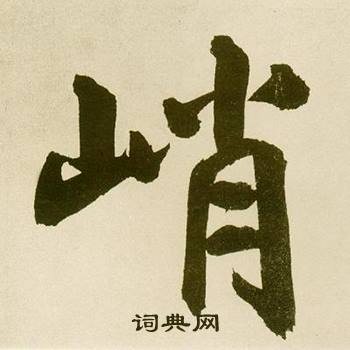 峭
词典网